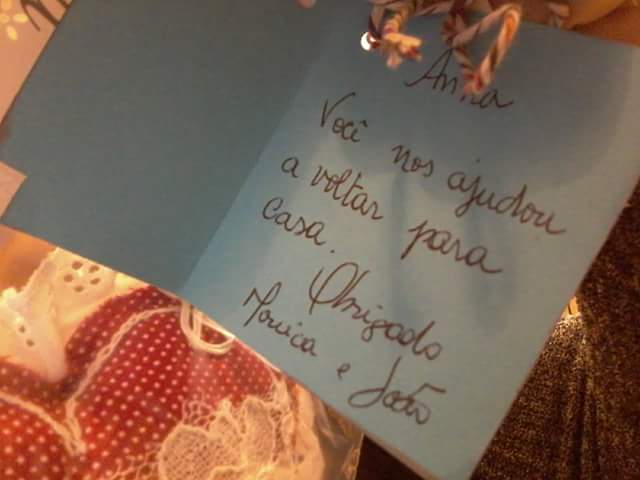 Anna
Você nos ajudou
a voltar para
casa.
Obrigado
Monica e João